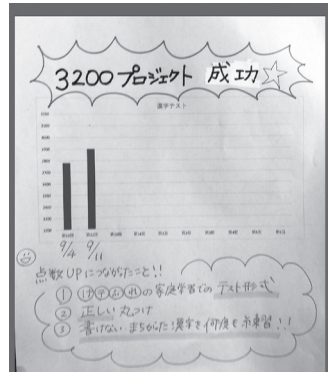 3200プロジェクト 成功☆
漢字テスト
9/4 9/11
点数UPにつながったこと!!
① けテぶれの家庭学習でのテスト形式
② 正しい丸つけ
③ 書けない まちがった漢字を何度も練習!!